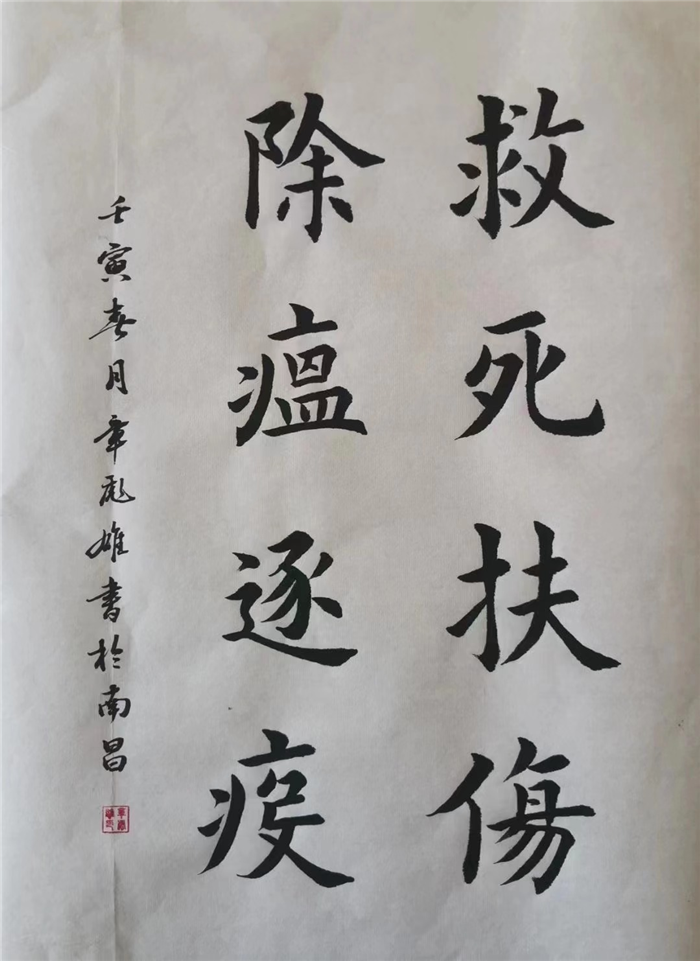 救死扶傷
除瘟逐疫
壬寅春月章彪雄書於南昌